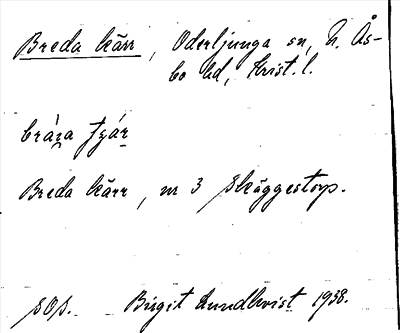 Breda kärr, Oderljunga sn, N. Ås-
bo hd, Krist. l.
Breda kärr, nr 3 Skäggestorp.
sOp. Birgit Lundkvist 1938.